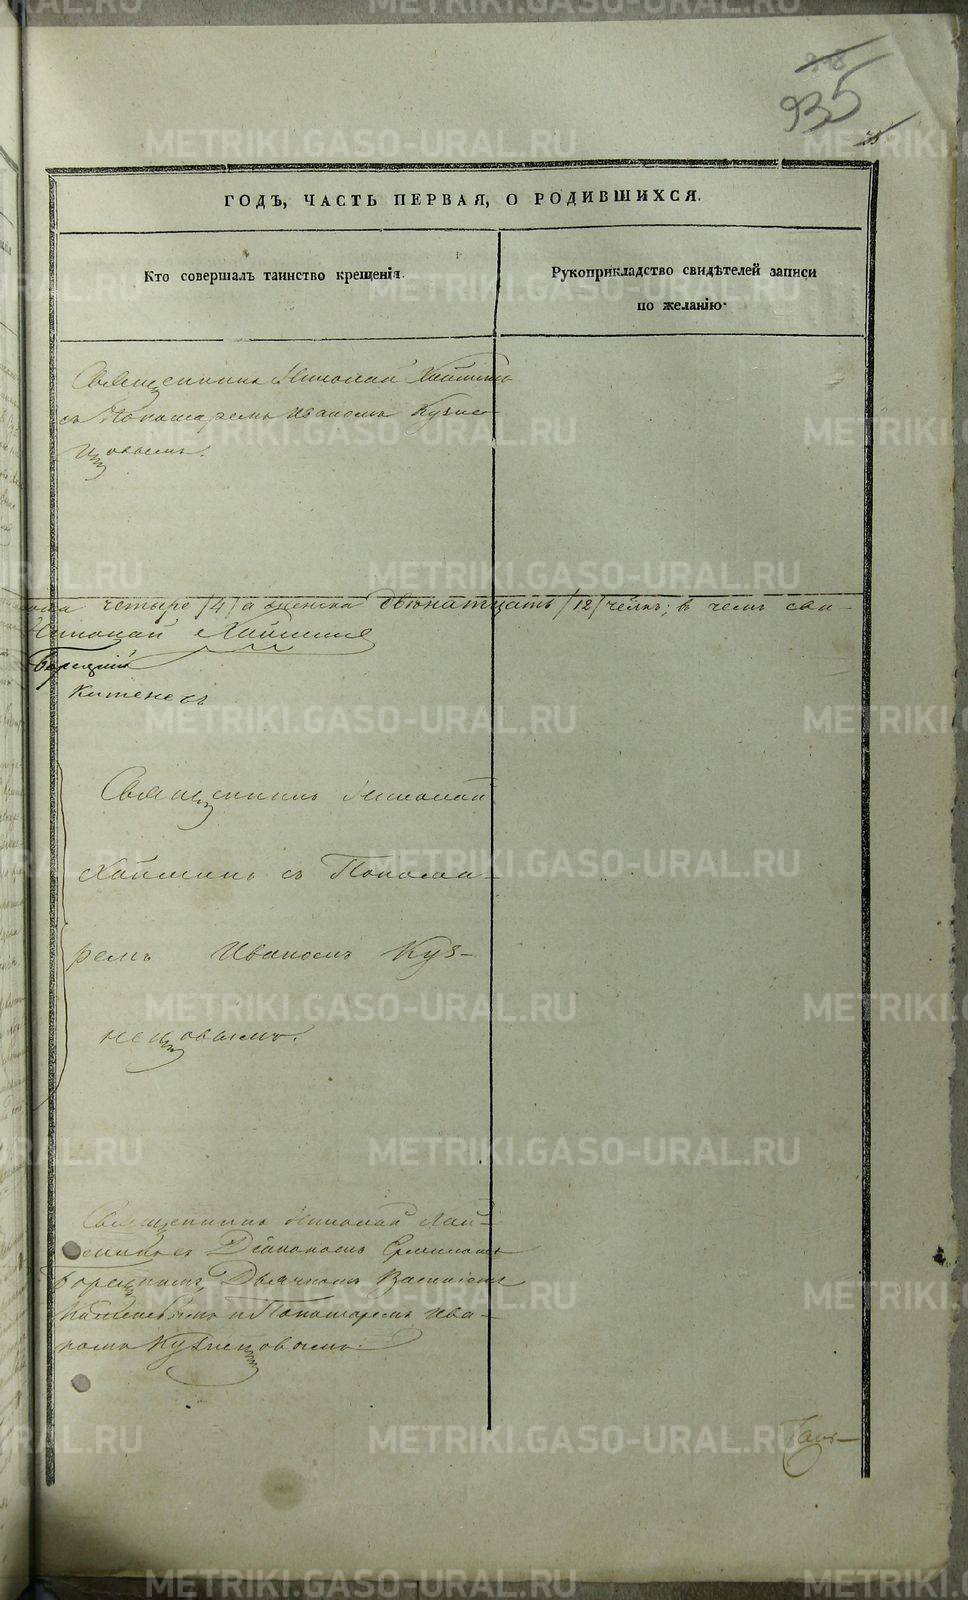 METRIKI.GASO-URAL.RU
935
ГОДЪ, ЧАСТЬ ПЕРВАЯ, О РОДИВШИХСЯ.
Кто совершалъ таинство крещенія.
Рукоприкладство свидѣтелей записи
по желанію.
Священникъ Николай
съ Пономаремъ Иваномъ Кузне-
цовымъ.
четыре /4/ а женска двенатцать /12/ челкъ; в чемъ сви-
Николай
Священникъ Николай
съ Понома-
ремъ Иваномъ Куз-
нецовымъ.
Священникъ Николай
съ Діакономъ
Дьячкомъ Василіемъ
и Пономаремъ Ива-
номъ Кузнецовымъ.